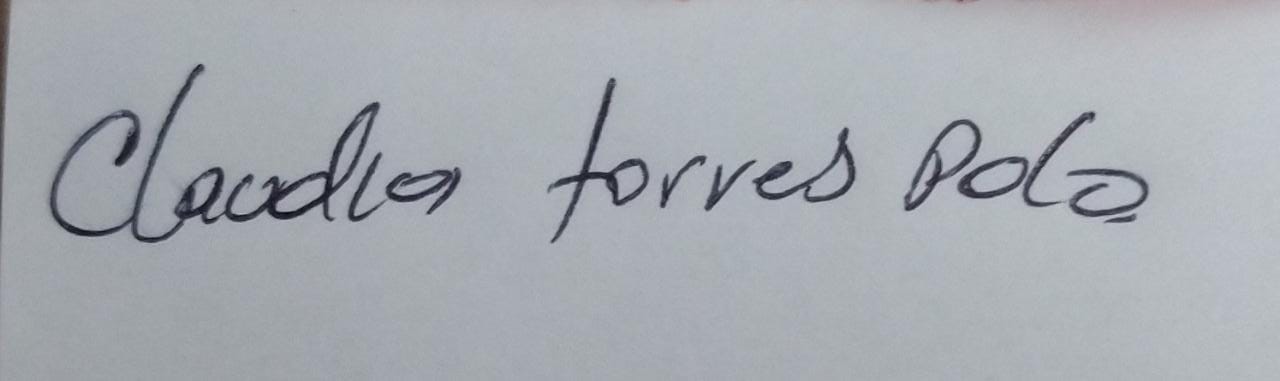 Claudia torres Polo